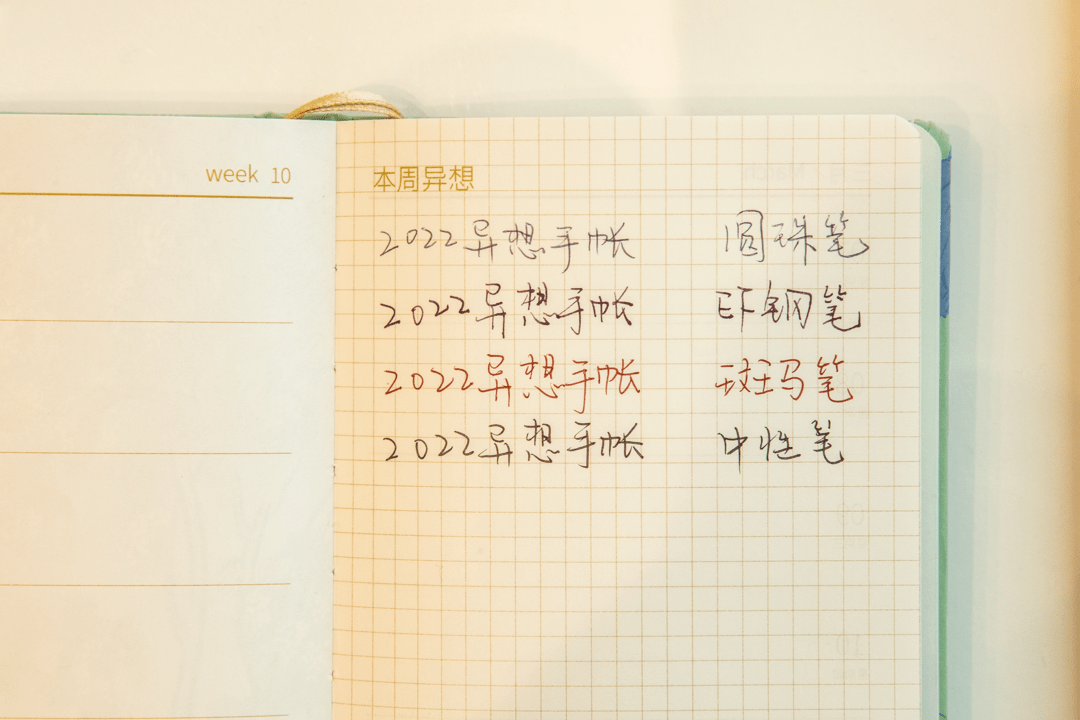 week 10
本周异想
2022异想手帐 圆珠笔
2022异想手帐 EF钢笔
2022异想手帐 斑马笔
2022异想手帐 中性笔